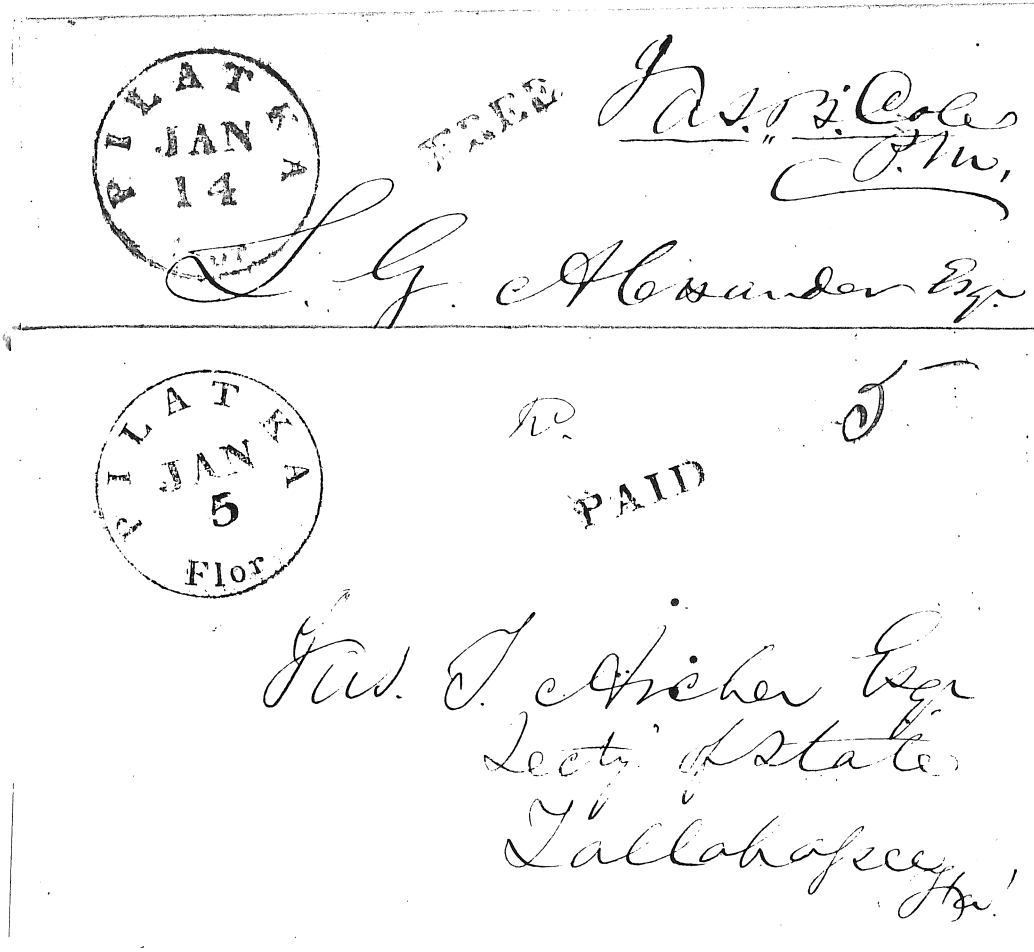 PILATKA
JAN
14
FREE
Jas. B. Cole
P.M.
S. G. Alexander Esqr
PILATKA
JAN
5
Flor
PAID
5
Jas. T. Archer Esqr
Secty' of State
Tallahassee
Fla!